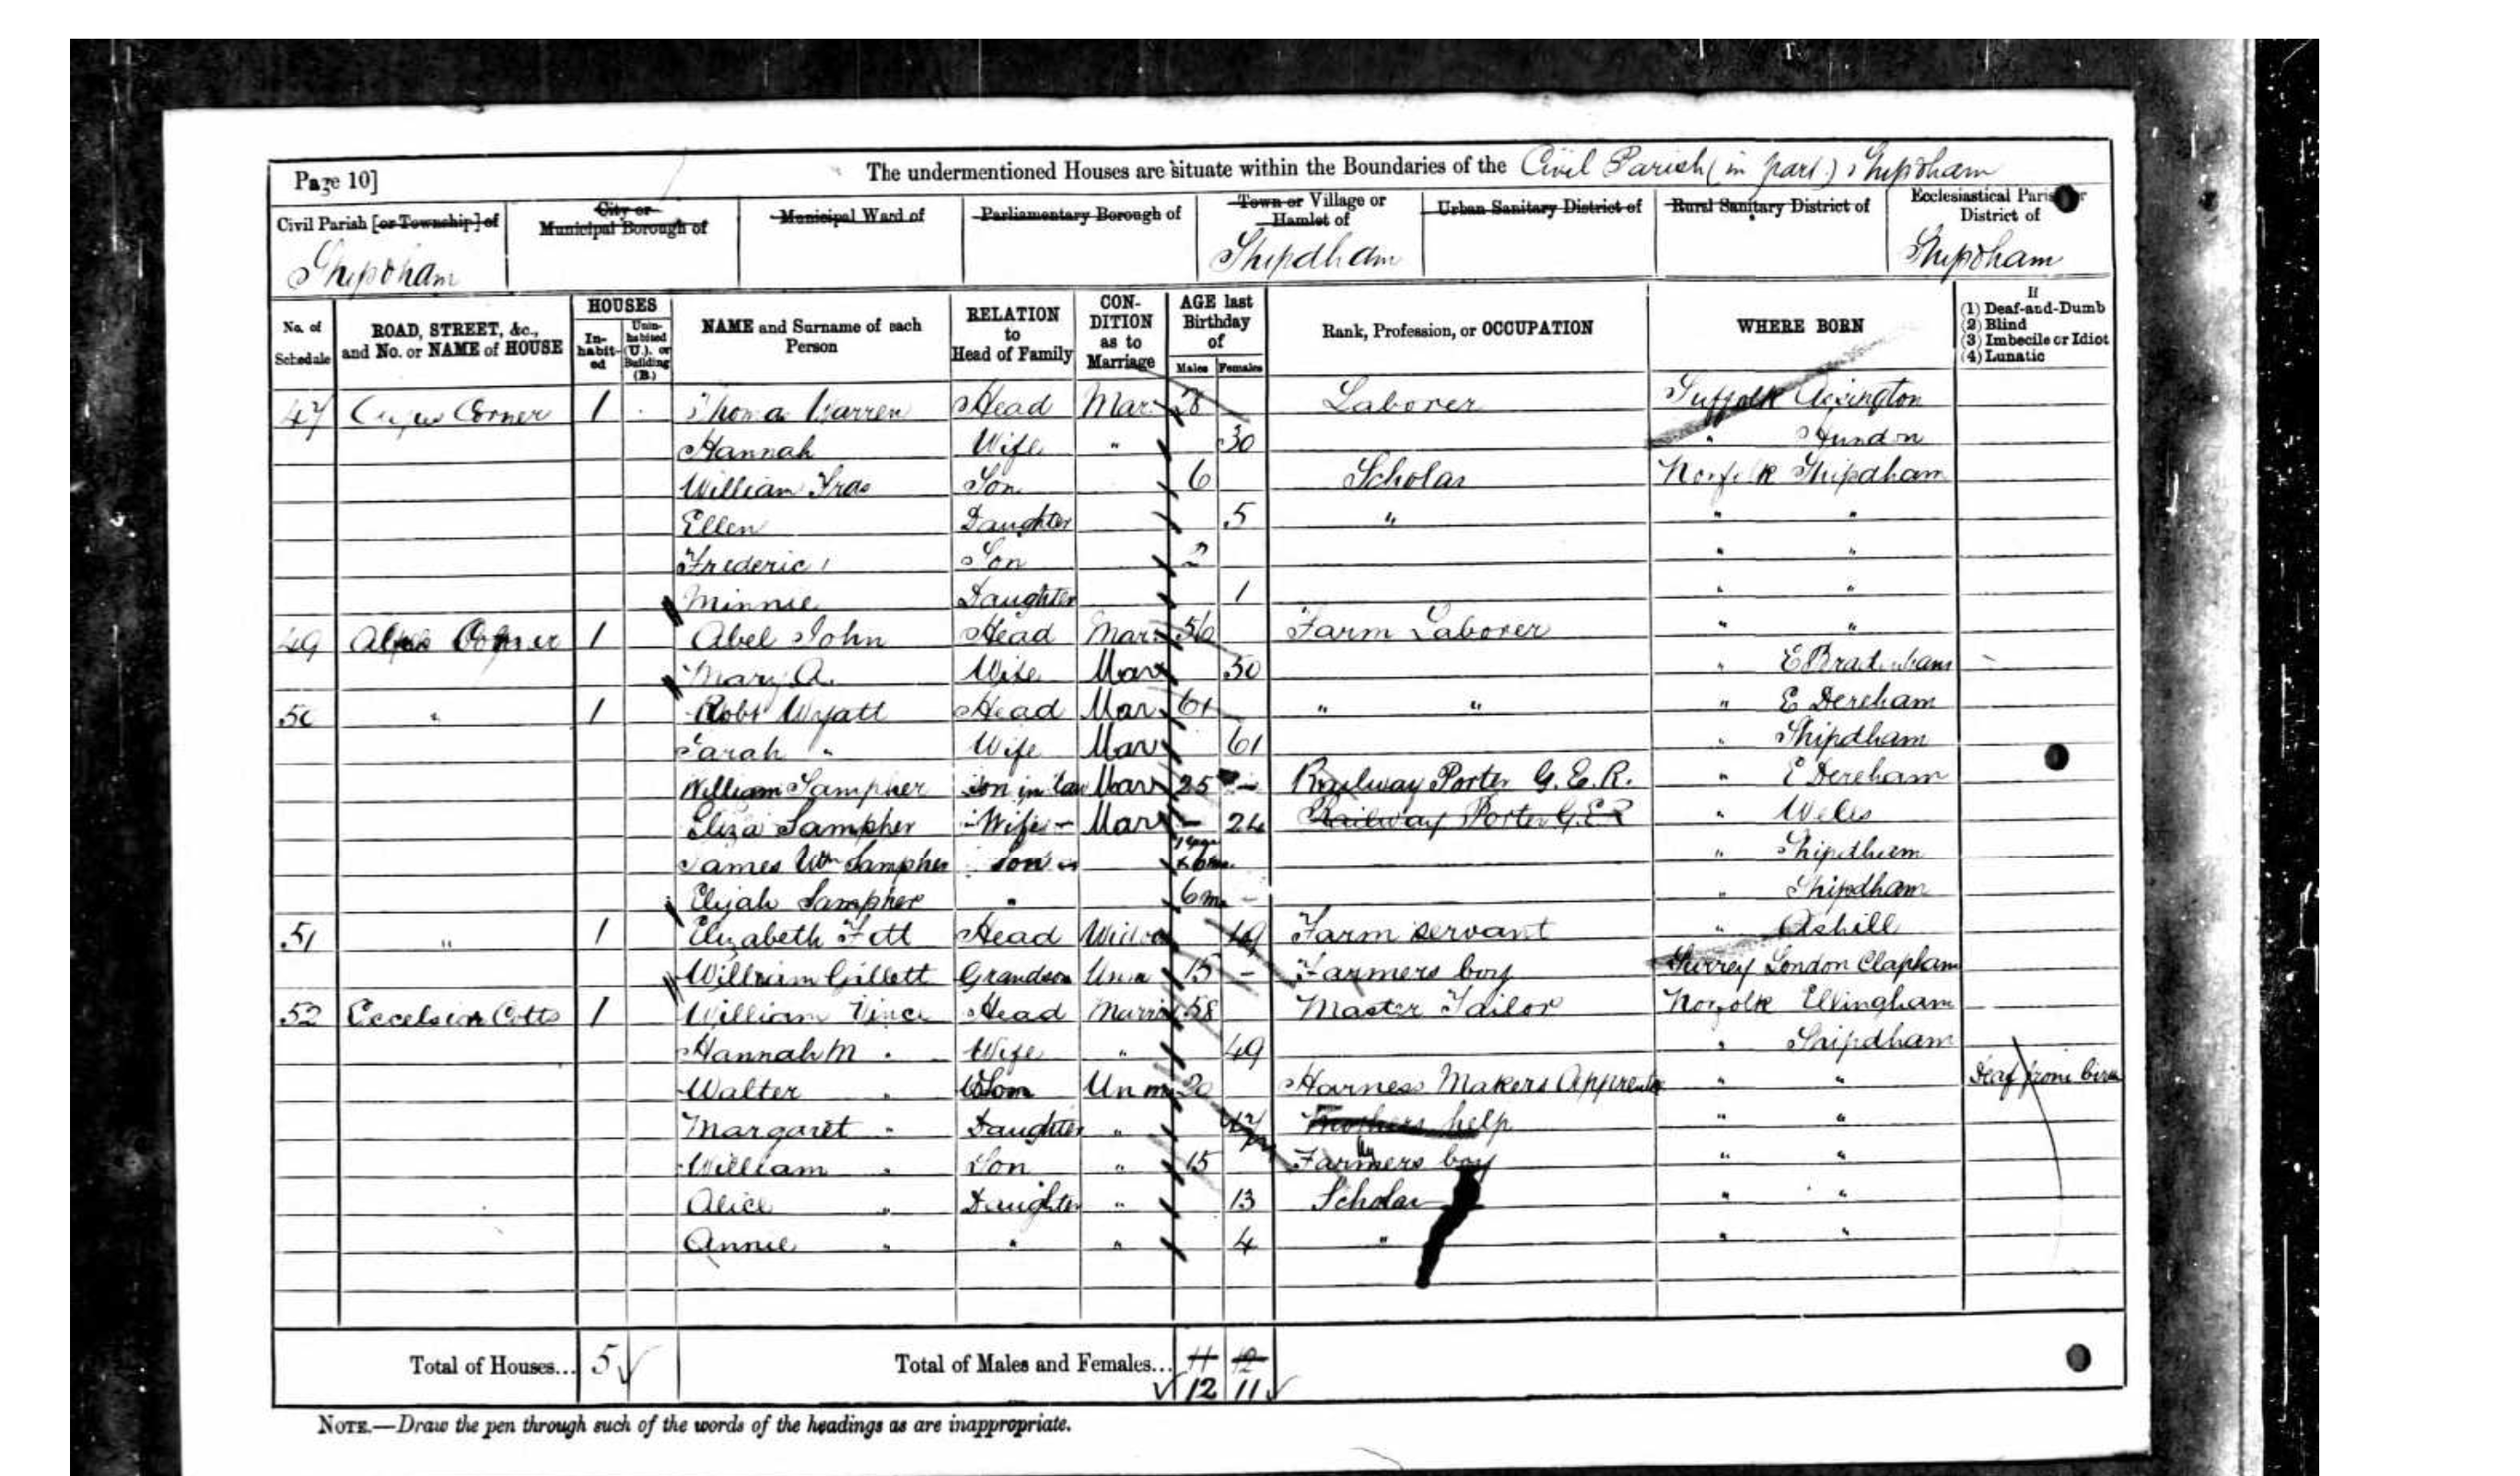 Page 10]
The undermentioned Houses are situate within the Boundaries of the Civil Parish (in part) Shipdham
Civil Parish [or Township] of Shipdham
City or Municipal Borough of
Municipal Ward of
Parliamentary Borough of
Town or Village or Hamlet of Shipdham
Urban Sanitary District of
Rural Sanitary District of
Ecclesiastical Parish or District of Shipdham
No. of Schedule
ROAD, STREET, &c., and No. or NAME of HOUSE
HOUSES
In-habit-ed
Unin-habited (U.), or Building (B.)
NAME and Surname of each Person
RELATION to Head of Family
CON-DITION as to Marriage
AGE last Birthday of
Males Females
Rank, Profession, or OCCUPATION
WHERE BORN
If
(1) Deaf-and-Dumb
(2) Blind
(3) Imbecile or Idiot
(4) Lunatic
47 Corner 1 Thomas Warren Head Mar. 28 Laborer Suffolk
Hannah Wife " 30 " Hundon
William Son 6 Scholar Norfolk Shipdham
Ellen Daughter 5 " " "
Frederic Son 2 " "
Minnie Daughter 1 " "
49 1 Abel John Head Mar. 56 Farm Laborer " "
Mary A. Wife Mar 50 " E Bradenham
50 " 1 Robt Wyatt Head Mar 61 " " " E Dereham
Sarah " Wife Mar 61 " Shipdham
William Sampher Son in law Mar 25 - Railway Porter G.E.R. " E Dereham
Eliza Sampher - Wife - Mar - 24 Railway Porter G.E.R " Wells
James Wm Sampher Son " Shipdham
Elijah Sampher " 6m - " Shipdham
51 " 1 Elizabeth Head Widow Farm servant " Ashill
William Gillett Grandson Unm 15 - Farmers boy Surrey London Clapham
52 Excelsior Cotts 1 William Vince Head Married 58 Master Tailor Norfolk Ellingham
Hannah M " Wife " 49 " Shipdham
Walter " Son Unm 20 Harness Makers Apprentice " " Deaf from birth
Margaret " Daughter " 17 Mothers help " "
William " Son " 15 Farmers boy " "
Alice " Daughter " 13 Scholar " "
Annie " " " 4 " " "
Total of Houses... 5
Total of Males and Females... 11 12
12 11
NOTE.—Draw the pen through such of the words of the headings as are inappropriate.